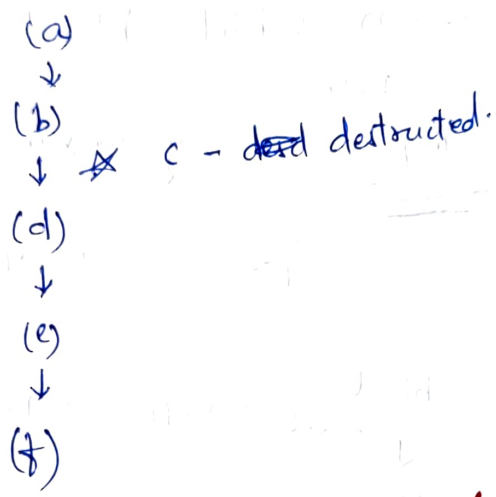 (a)
↓
(b)
↓ ☆ c - destructed.
(d)
↓
(e)
↓
(f)